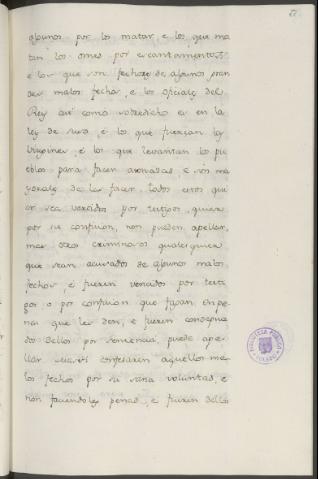 algunos por los matar, e los que ma
tan los omes por encantamentos
e los que son fechores de algunos gran
des malos fechos, e los oficiales del
Rey asi como sobredicho es en la
ley de suso, e los que fuerzan las
virgines, e los que levantan los pu
eblos para facer asonadas e son ma
yorales de las facer, todos estos que
or sea vencidos por testigos, quier
por su confusion, non pueden apellar,
mas otros criminosos qualesquier
que sean acusados de algunos malos
fechos, e fueren vencidos por testi
gos o por confusion que fagan en pe
na que les den, e fueren
dellos por sentencia, puede ape
llar si confesaren aquellos ma
los fechos por su sana voluntad, e
non faciendoles penas, e fueren dellos